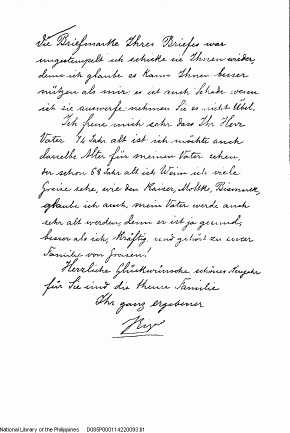 Die Briefmarke Ihres Briefes war
ungestempelt ich schicke sie Ihnen wieder,
denn ich glaube es kann Ihnen besser
nützen als mir es ist auch Schade wenn
ich sie auswerfe nehmen Sie es nicht Übel.
Ich freue mich sehr dass Ihr Herr
Vater 76 Jahr alt ist ich möchte auch
dasselbe Alter für meinen Vater sehen,
der schon 68 Jahr alt ist Wenn ich viele
Greise sehe, wie den Kaiser, Moltke, Bismarck,
glaube ich auch mein Vater werde auch
sehr alt werden, denn er ist ja gesund,
besser als ich, kräftig, und gehört zu einer
Familie von Greisen!
Herzliche Glückwünsche schönes Neujahr
für Sie und die theure Familie
Ihr ganz ergebener
National Library of the Philippines D085P000114220093.tif